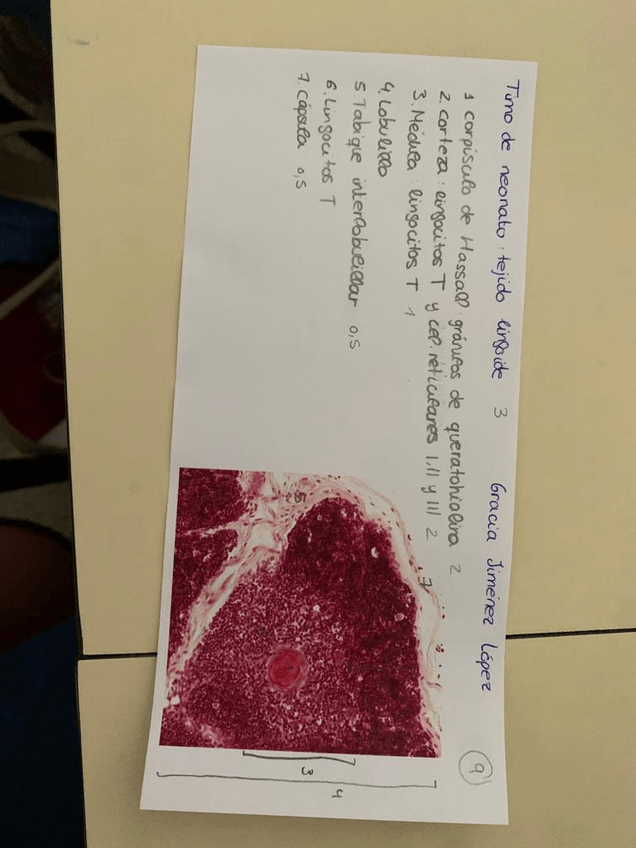 Timo de neonato: tejido linfoide 3 Gracia Jiménez López
9
1 corpúsculo de Hassall: gránulos de queratohialina 2
2. corteza: linfocitos T y cél. reticulares I, II y III 2
3. Médula: linfocitos T 1
4. Lobulillo
5. Tabique interlobulillar 0,5
6. Linfocitos T
7. Cápsula 0,5
5
7
3
4